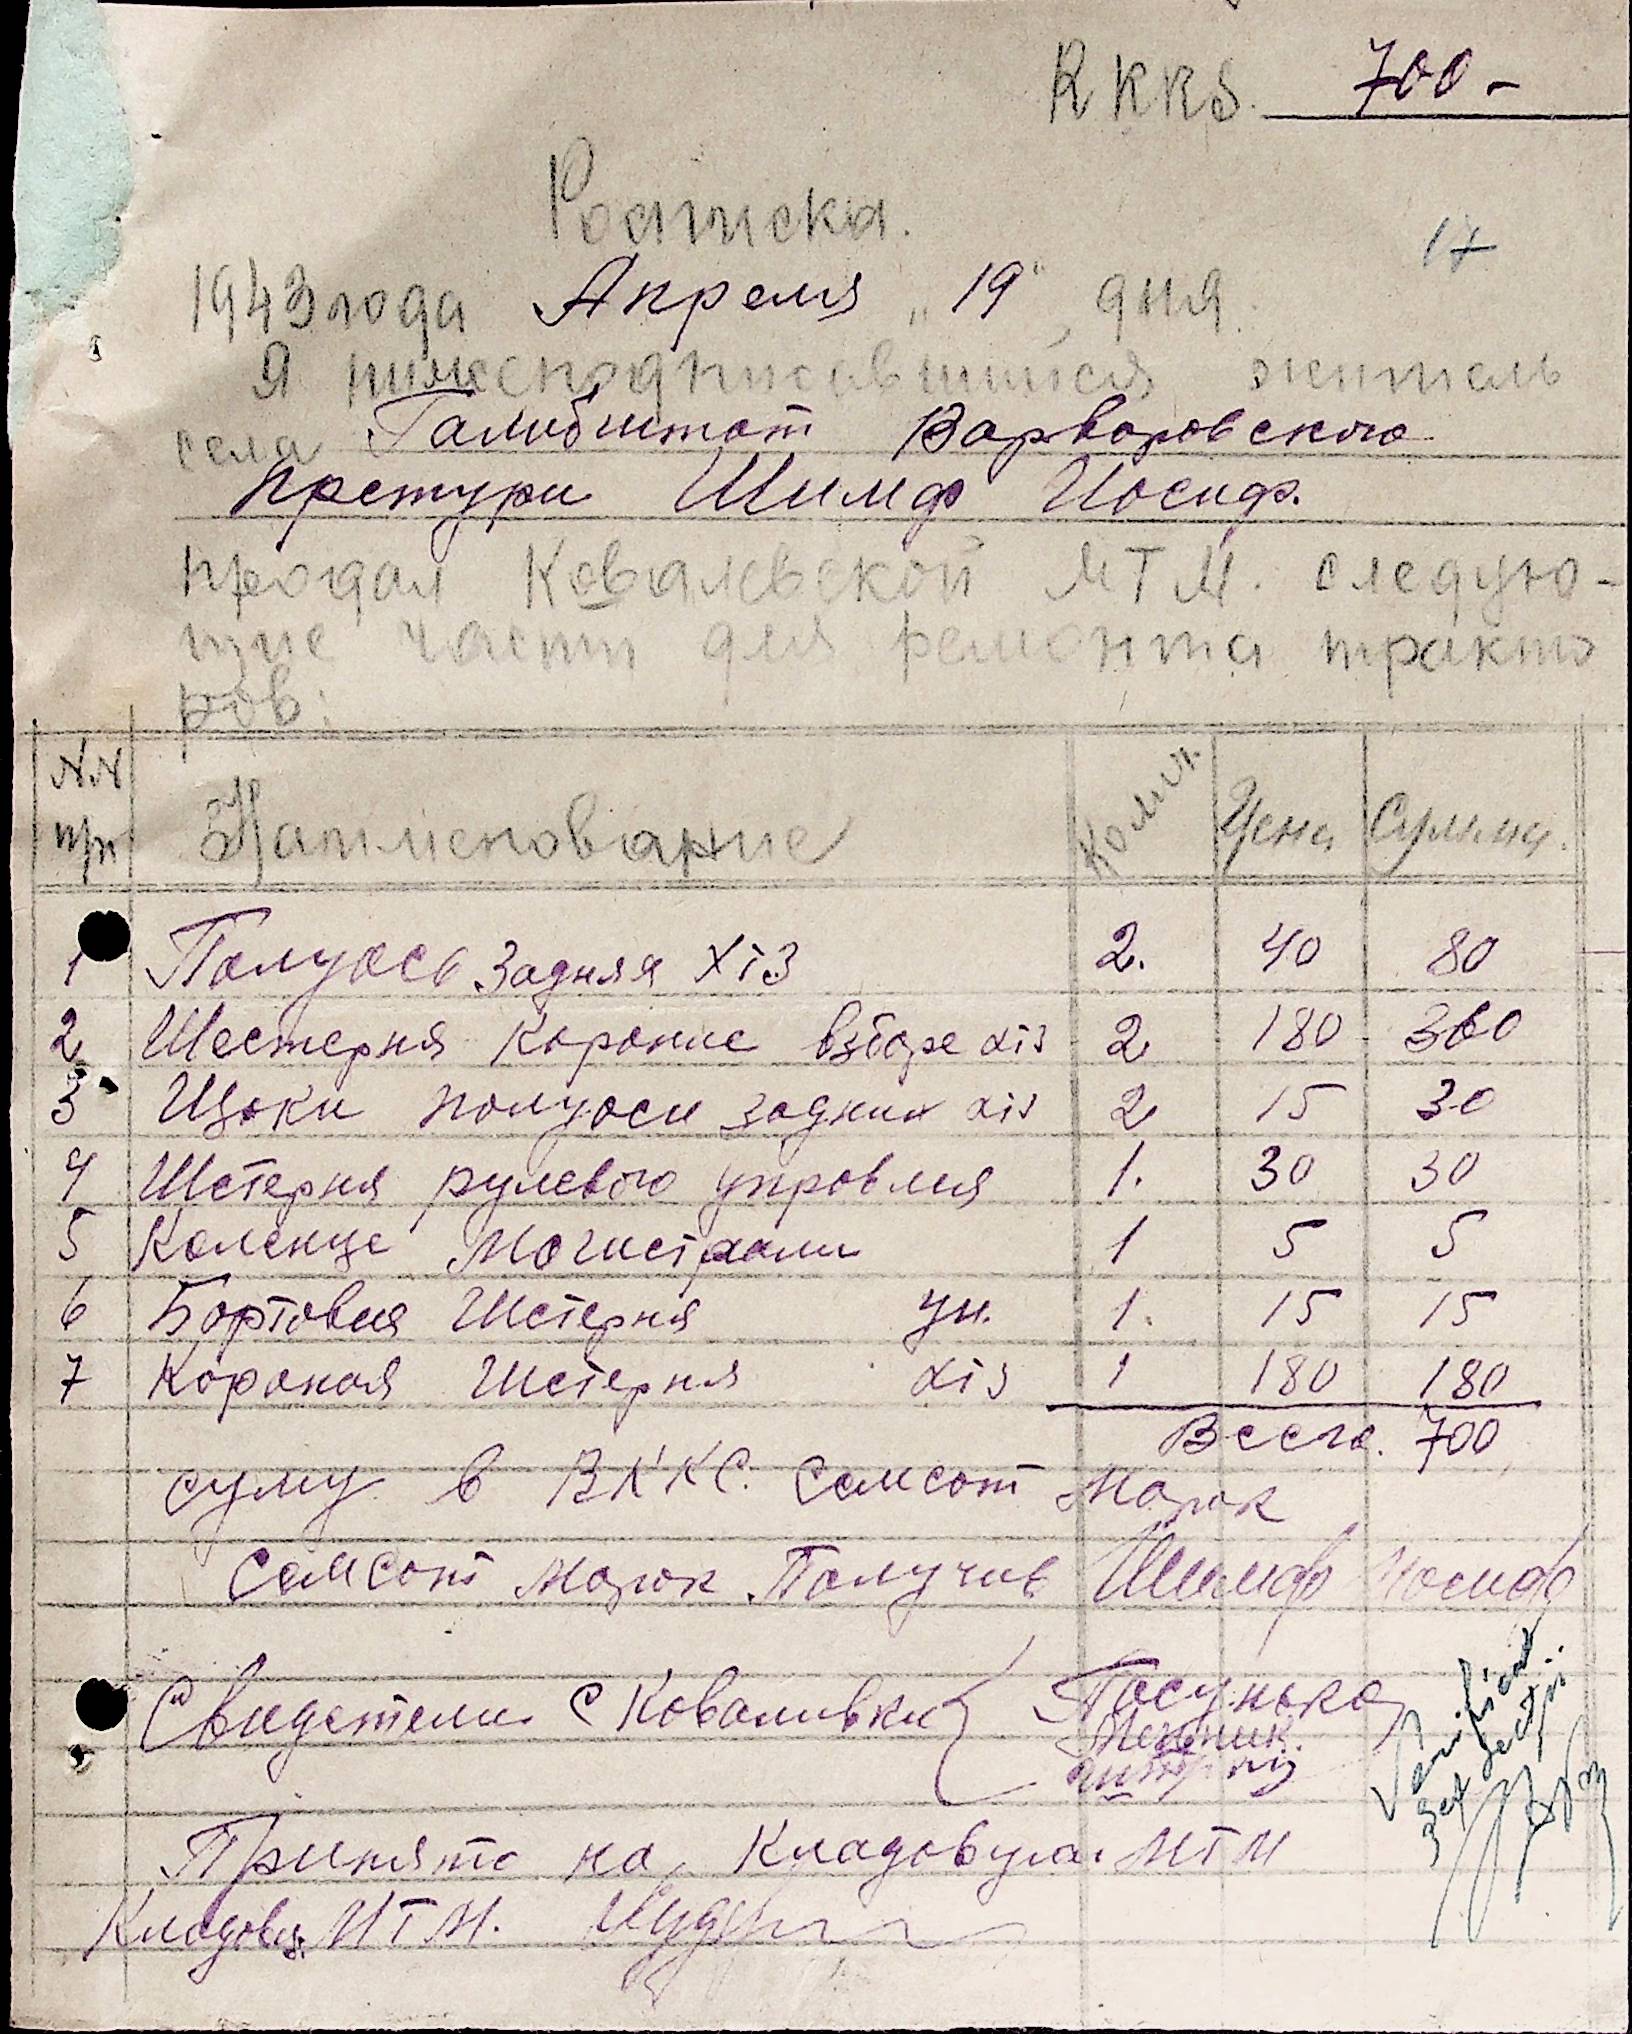 RKKS. 700-
Росписка.
17
1943 года Апреля "19" дня.
Я нижеподписавшийся житель
села Галибштат Варваровского
Претури Шимф Иосиф.
продал Ковалевской МТМ. следую-
щие части для ремонта тракто
ров:
NN п/п Наименование Колич. Цена Сумма.
1 Полуось задняя Хтз 2. 40 80
2 Шестерня короние взборе хтз 2 180 360
3 Щоки полуоси задних хтз 2 15 30
4 Шстерня рулевого управлия 1. 30 30
5 Коленце Могистрали 1 5 5
6 Бортовая Шстерня ун. 1. 15 15
7 Короная Шстерня хтз 1 180 180
Всего. 700
суму в ВККС. семсот марок
семсот марок Получив Шимф Иосиф
Свидетели с Коваливки Посунько
Мельник
Принято на Кладовую МТМ
Кладовщ. МТМ.